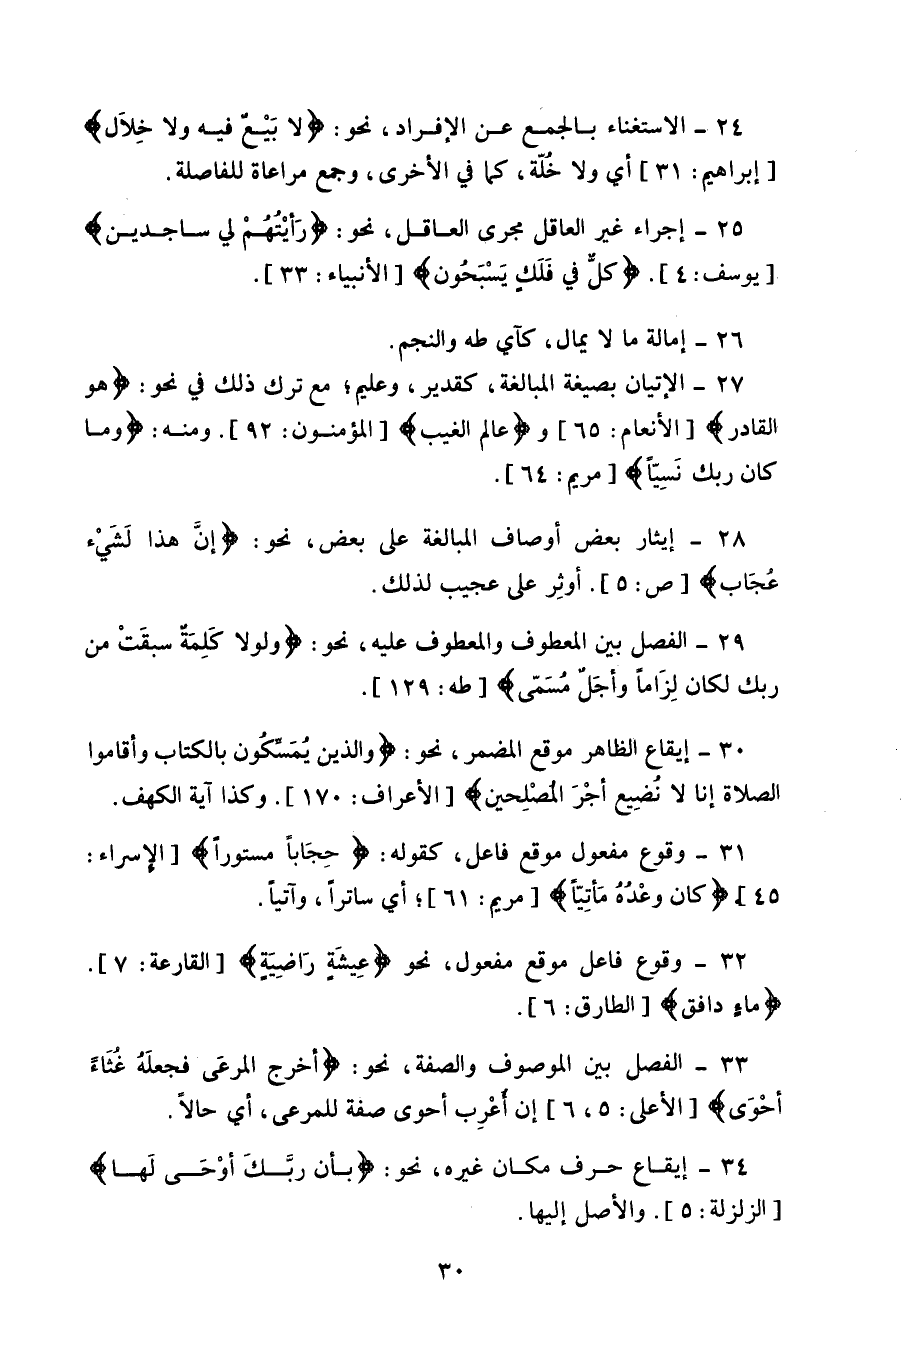 ٢٤ - الاستغناء بالجمع عن الإفراد، نحو: ﴿لا بَيْعٌ فيه ولا خِلاَل﴾
[إبراهيم: ٣١] أي ولا خُلّة، كما في الأخرى، وجمع مراعاة للفاصلة.
٢٥ - إجراء غير العاقل مجرى العاقل، نحو: ﴿رَأَيْتُهُمْ لي ساجدين﴾
[يوسف: ٤]. ﴿كلٌّ في فَلَكٍ يَسْبَحُون﴾ [الأنبياء: ٣٣].
٢٦ - إمالة ما لا يمال، كآي طه والنجم.
٢٧ - الإتيان بصيغة المبالغة، كقدير، وعليم؛ مع ترك ذلك في نحو: ﴿هو
القادر﴾ [الأنعام: ٦٥] و ﴿عالم الغيب﴾ [المؤمنون: ٩٢]. ومنه: ﴿وما
كان ربك نَسِيّاً﴾ [مريم: ٦٤].
٢٨ - إيثار بعض أوصاف المبالغة على بعض، نحو: ﴿إنَّ هذا لَشَيْء
عُجَاب﴾ [ص: ٥]. أوثِر على عجيب لذلك.
٢٩ - الفصل بين المعطوف والمعطوف عليه، نحو: ﴿ولولا كَلِمَةٌ سبقَتْ من
ربك لكان لِزَاماً وأجَلٌ مُسَمّى﴾ [طه: ١٢٩].
٣٠ - إيقاع الظاهر موقع المضمر، نحو: ﴿والذين يُمَسِّكُون بالكتاب وأقاموا
الصلاة إنا لا نُضِيع أجْرَ المُصْلِحين﴾ [الأعراف: ١٧٠]. وكذا آية الكهف.
٣١ - وقوع مفعول موقع فاعل، كقوله: ﴿حِجَاباً مستوراً﴾ [الإسراء:
٤٥]. ﴿كان وعْدُهُ مَأتِيّاً﴾ [مريم: ٦١]؛ أي ساتراً، وآتياً.
٣٢ - وقوع فاعل موقع مفعول، نحو ﴿عِيشَةٍ رَاضِيَةٍ﴾ [القارعة: ٧].
﴿ماءٍ دافق﴾ [الطارق: ٦].
٣٣ - الفصل بين الموصوف والصفة، نحو: ﴿أخرج المرعَى فجعلَهُ غُثَاءً
أحْوَى﴾ [الأعلى: ٥، ٦] إن أُعْرِب أحوى صفة للمرعى، أي حالاً.
٣٤ - إيقاع حرف مكان غيره، نحو: ﴿بأن ربَّكَ أوْحَى لَها﴾
[الزلزلة: ٥]. والأصل إليها.
٣٠